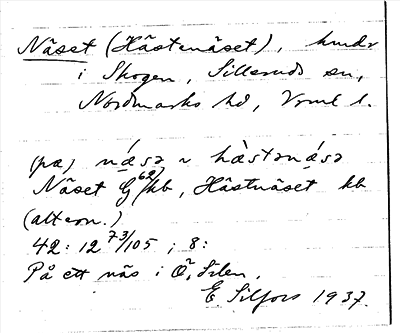 Näset (Hästenäset), hmdr
i Skogen, Silleruds sn,
Nordmarks hd, Vrml l.
(pæ) næ̀sə ~ hæ̀stənæ̀sə
Näset G 62/kb, Hästnäset kb
(altern.)
42: 12 73/105 ; 8:
På ett näs i Ö.
E. Silfors 1937.